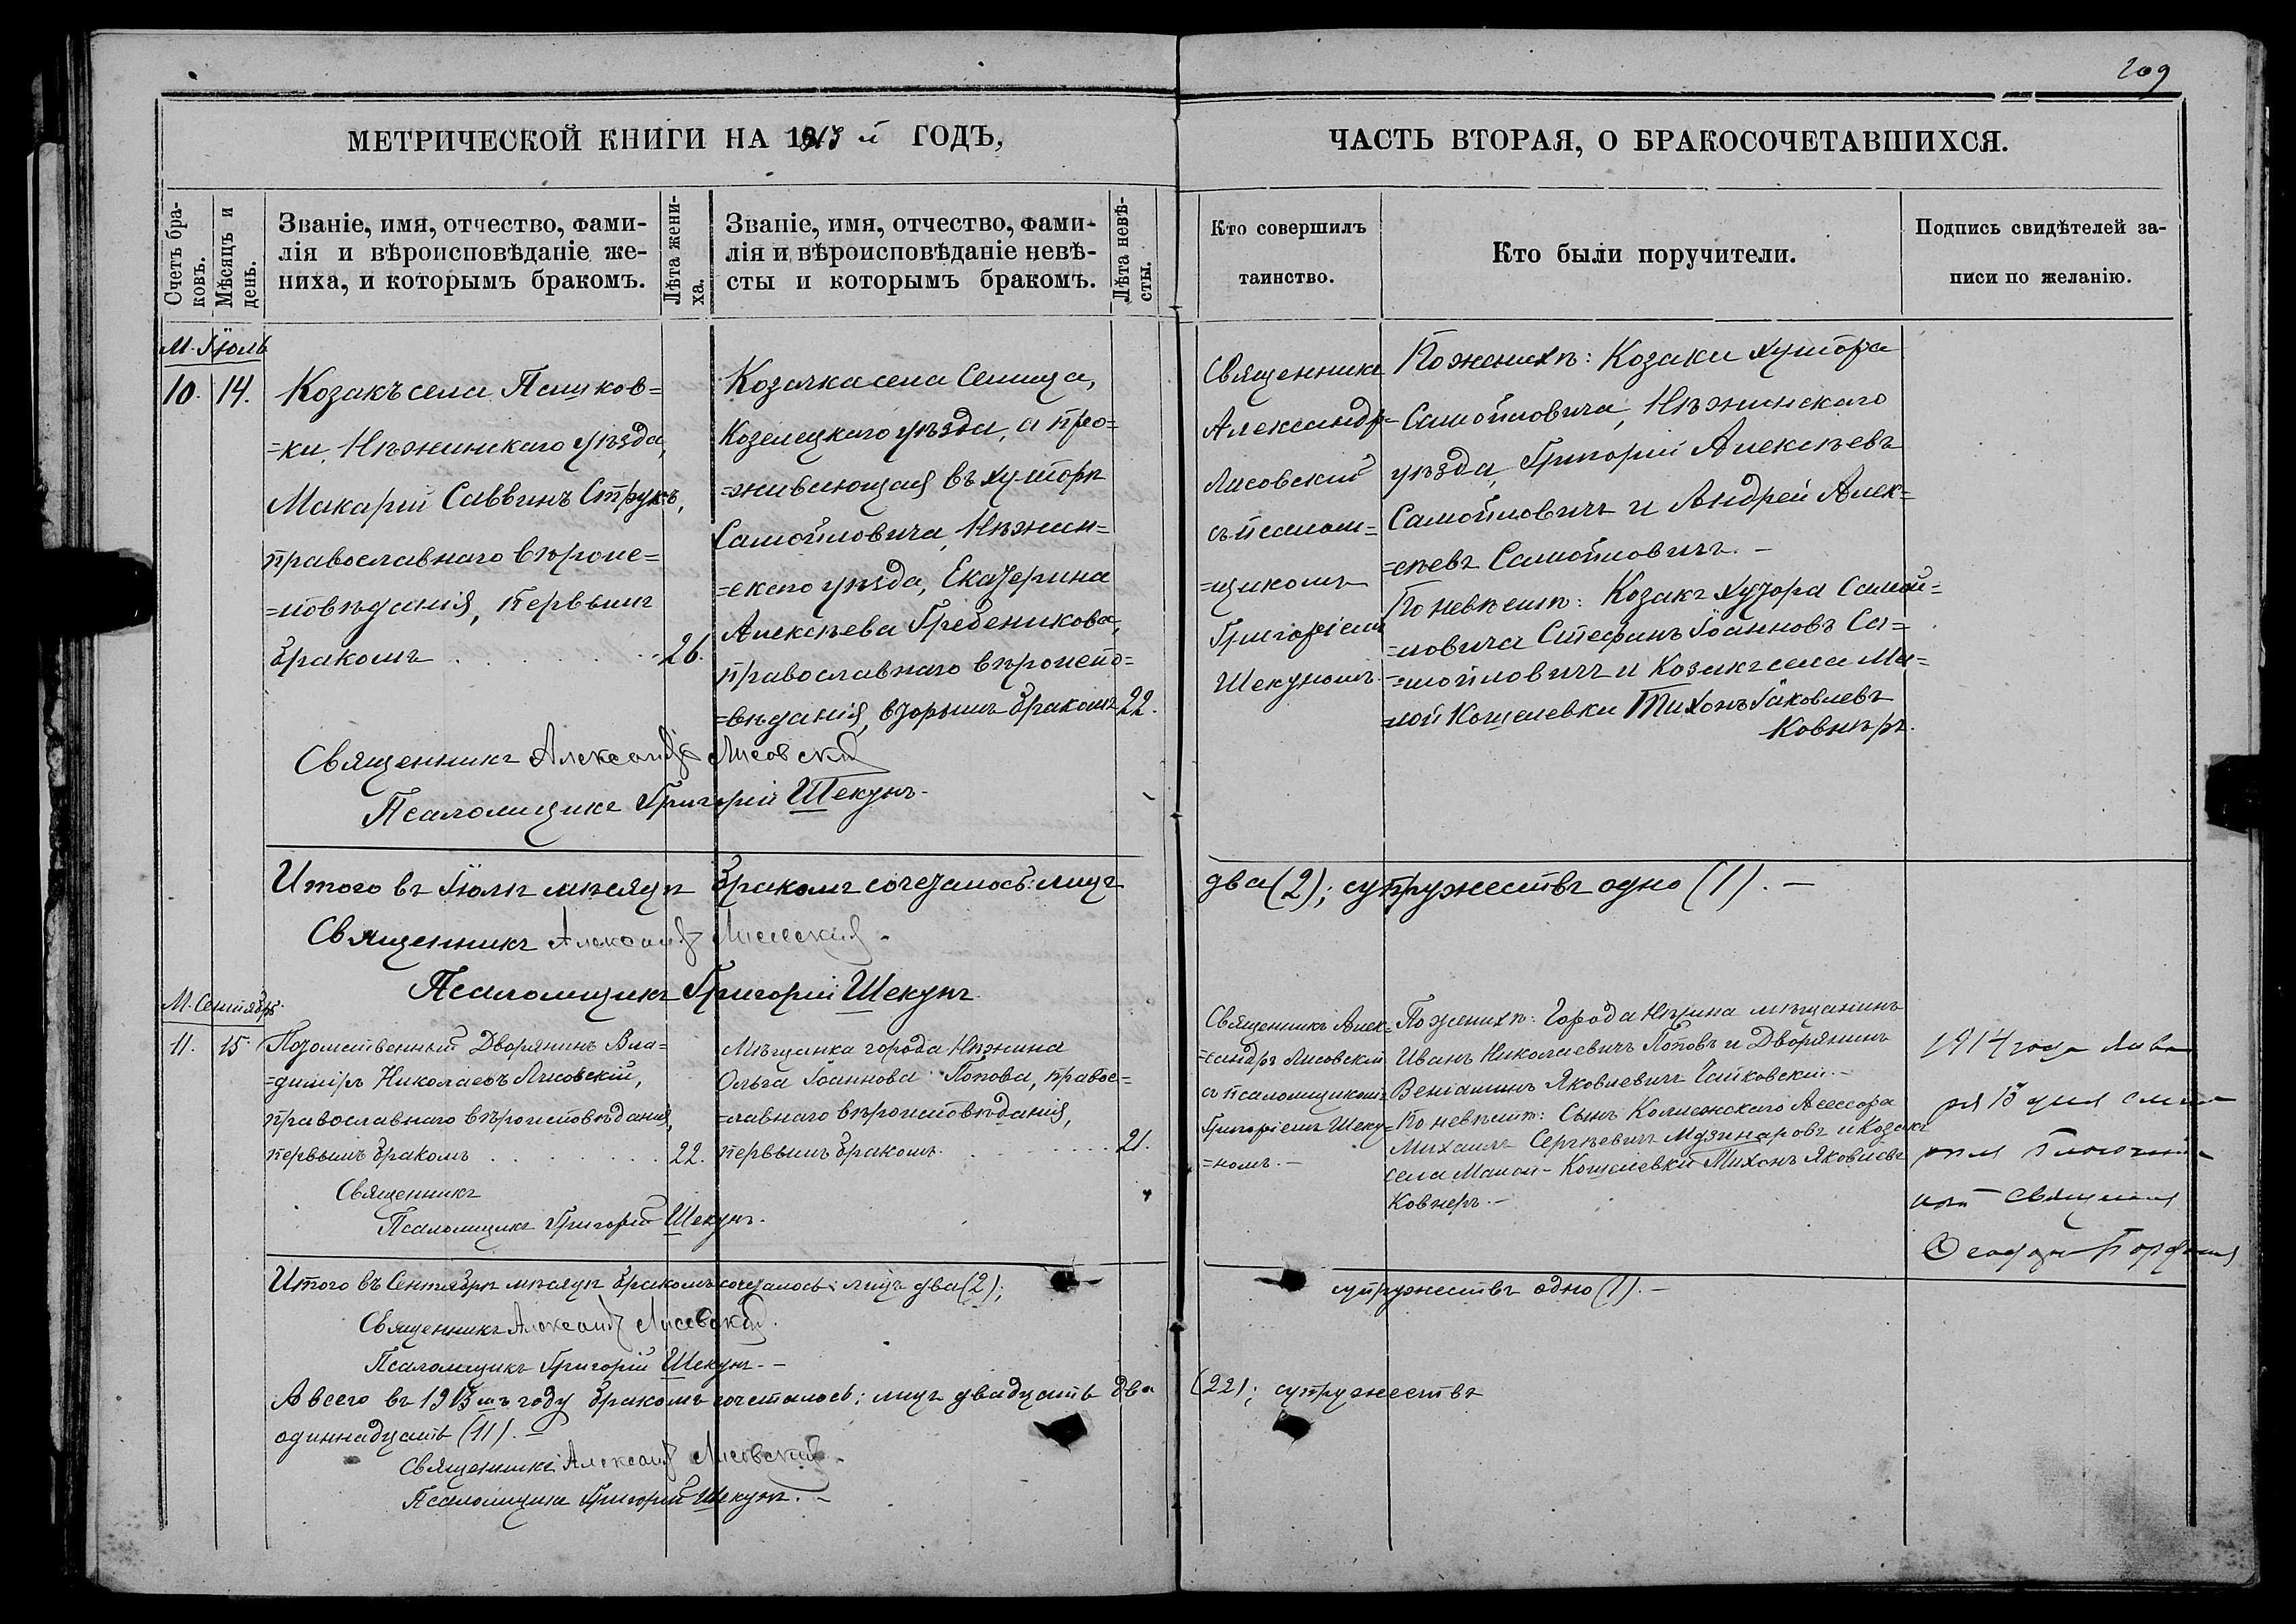 209
МЕТРИЧЕСКОЙ КНИГИ НА 1913 й ГОДЪ,
ЧАСТЬ ВТОРАЯ, О БРАКОСОЧЕТАВШИХСЯ.
Счетъ бра-
ковъ.
Мѣсяцъ и
день.
Званіе, имя, отчество, фами-
лія и вѣроисповѣданіе же-
ниха, и которымъ бракомъ.
Лѣта жени-
ха.
Званіе, имя, отчество, фами-
лія и вѣроисповѣданіе невѣ-
сты и которымъ бракомъ.
Лѣта невѣ-
сты.
Кто совершилъ
таинство.
Кто были поручители.
Подпись свидѣтелей за-
писи по желанію.
М. Іюль
10. 14.
Козакъ села Пашков=
=ки, Нѣжинскаго уѣзда,
Макарій Саввинъ Струкъ,
православнаго вѣроис=
=повѣданія, первымъ
бракомъ
26.
Козачка села Семища,
Козелецкаго уѣзда, а про=
=живающая въ хуторѣ
Самойловича, Нѣжин=
=скаго уѣзда, Екатерина
Алексѣева Гребеникова,
православнаго вѣроиспо=
=вѣданія, вторымъ бракомъ 22.
Священникъ
Александръ
Лисовскій
съ псалом=
=щикомъ
Григоріемъ
Шекуномъ.
По женихѣ: Козаки хутора
Самойловича, Нѣжинскаго
уѣзда, Григорій Алексѣевъ
Самойловичъ и Андрей Алек=
=сѣевъ Самойловичъ. —
По невѣстѣ: Козакъ хутора Самой=
=ловича Стефанъ Іоанновъ Са=
=мойловичъ и Козакъ села Ма=
=лой Кошелевки Тихонъ Іаковлевъ
Ковнѣръ.
Священникъ Александръ Лисовскій
Псаломщикъ Григорій Шекунъ.
Итого въ Іюлѣ мѣсяцѣ бракомъ сочеталось: лицъ
два (2); супружествъ одно (1). —
Священникъ Александръ Лисовскій.
Псаломщикъ Григорій Шекунъ
М. Сентябрь.
11. 15.
Потомственный Дворянинъ Вла=
=диміръ Николаевъ Лисовскій,
православнаго вѣроисповѣданія,
первымъ бракомъ
22.
Мѣщанка города Нѣжина
Ольга Іоаннова Попова, право=
=славнаго вѣроисповѣданія,
первымъ бракомъ.
21.
Священникъ Алек=
=сандръ Лисовскій
съ псаломщикомъ
Григоріемъ Шеку=
=номъ. —
По женихѣ: Города Нѣжина мѣщанинъ
Иванъ Николаевичъ Поповъ и Дворянинъ
Веніаминъ Яковлевичъ Чайковскій. —
По невѣстѣ: Сынъ Коллежскаго Асессора
Михаилъ Сергѣевичъ и Козакъ
села Малой-Кошелевки Тихонъ Яковлевъ
Ковнеръ. —
1914 года Янва
ря 15 дня
Священникъ
Священникъ
Псаломщикъ Григорій Шекунъ.
Итого въ Сентябрѣ мѣсяцѣ бракомъ сочеталось: лицъ два (2);
супружествъ одно (1). —
Священникъ Александръ Лисовскій.
Псаломщикъ Григорій Шекунъ. —
А всего въ 1913 мъ году бракомъ сочеталось: лицъ двадцать два
(22); супружествъ
одиннадцать (11). —
Священникъ Александръ Лисовскій.
Псаломщикъ Григорій Шекунъ. —